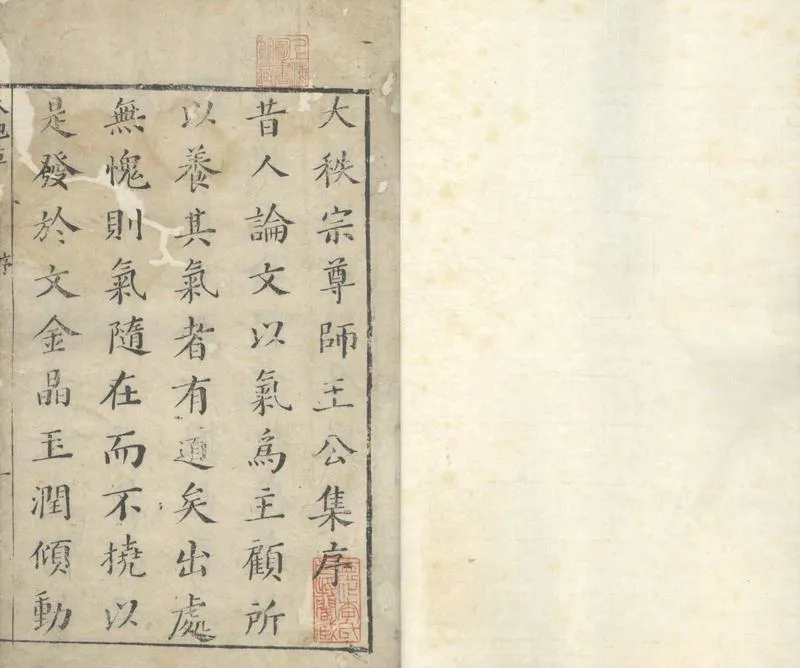 大秩宗尊師王公集序
昔人論文以氣為主顧所
以養其氣者有道矣出處
無愧則氣隨在而不撓以
是發於文金晶玉潤傾動
序